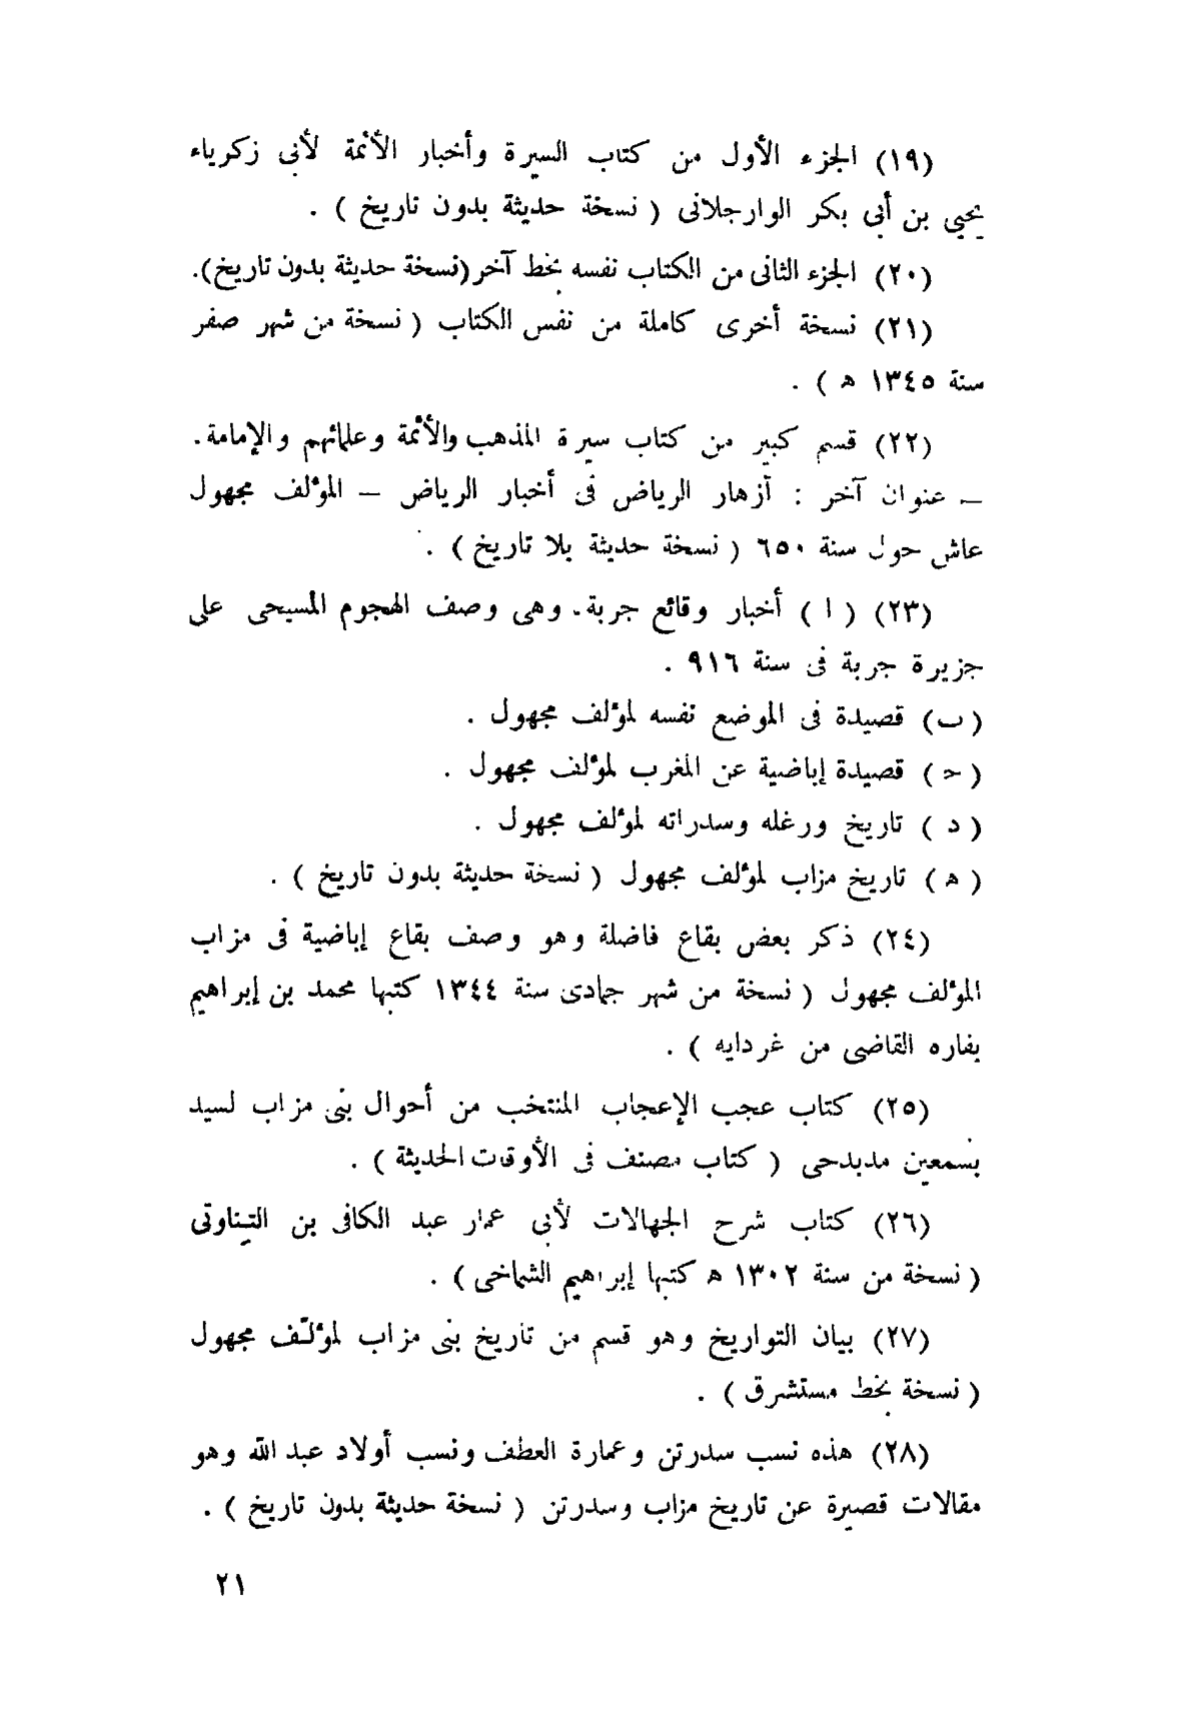 (١٩) الجزء الأول من كتاب السيرة وأخبار الأئمة لأبى زكرياء
يحيى بن أبى بكر الوارجلانى ( نسخة حديثة بدون تاريخ ) .
(٢٠) الجزء الثانى من الكتاب نفسه بخط آخر (نسخة حديثة بدون تاريخ).
(٢١) نسخة أخرى كاملة من نفس الكتاب ( نسخة من شهر صفر
سنة ١٣٤٥ هـ ) .
(٢٢) قسم كبير من كتاب سيرة المذهب والأئمة وعلمائهم والإمامة .
ــ عنوان آخر : أزهار الرياض فى أخبار الرياض – المؤلف مجهول
عاش حول سنة ٦٥٠ ( نسخة حديثة بلا تاريخ ) .
(٢٣) ( ا ) أخبار وقائع جربة . وهى وصف الهجوم المسيحى على
جزيرة جربة فى سنة ٩١٦ .
(ب) قصيدة فى الموضع نفسه لمؤلف مجهول .
( حـ ) قصيدة إباضية عن المغرب لمؤلف مجهول .
( د ) تاريخ ورغله وسدراته لمؤلف مجهول .
( هـ ) تاريخ مزاب لمؤلف مجهول ( نسخة حديثة بدون تاريخ ) .
(٢٤) ذكر بعض بقاع فاضلة وهو وصف بقاع إباضية فى مزاب
المؤلف مجهول ( نسخة من شهر جمادى سنة ١٣٤٤ كتبها محمد بن إبراهيم
بفاره القاضى من غردايه ) .
(٢٥) كتاب عجب الإعجاب المنتخب من أحوال بنى مزاب لسيد
بسمعين مدبدحى ( كتاب مصنف فى الأوقات الحديثة ) .
(٢٦) كتاب شرح الجهالات لأبى عمار عبد الكافى بن التيناوتى
( نسخة من سنة ١٣٠٢ هـ كتبها إبراهيم الشماخى ) .
(٢٧) بيان التواريخ وهو قسم من تاريخ بنى مزاب لمؤلّف مجهول
( نسخة بخط مستشرق ) .
(٢٨) هذه نسب سدرتن وعمارة العطف ونسب أولاد عبد الله وهو
مقالات قصيرة عن تاريخ مزاب وسدرتن ( نسخة حديثة بدون تاريخ ) .
٢١